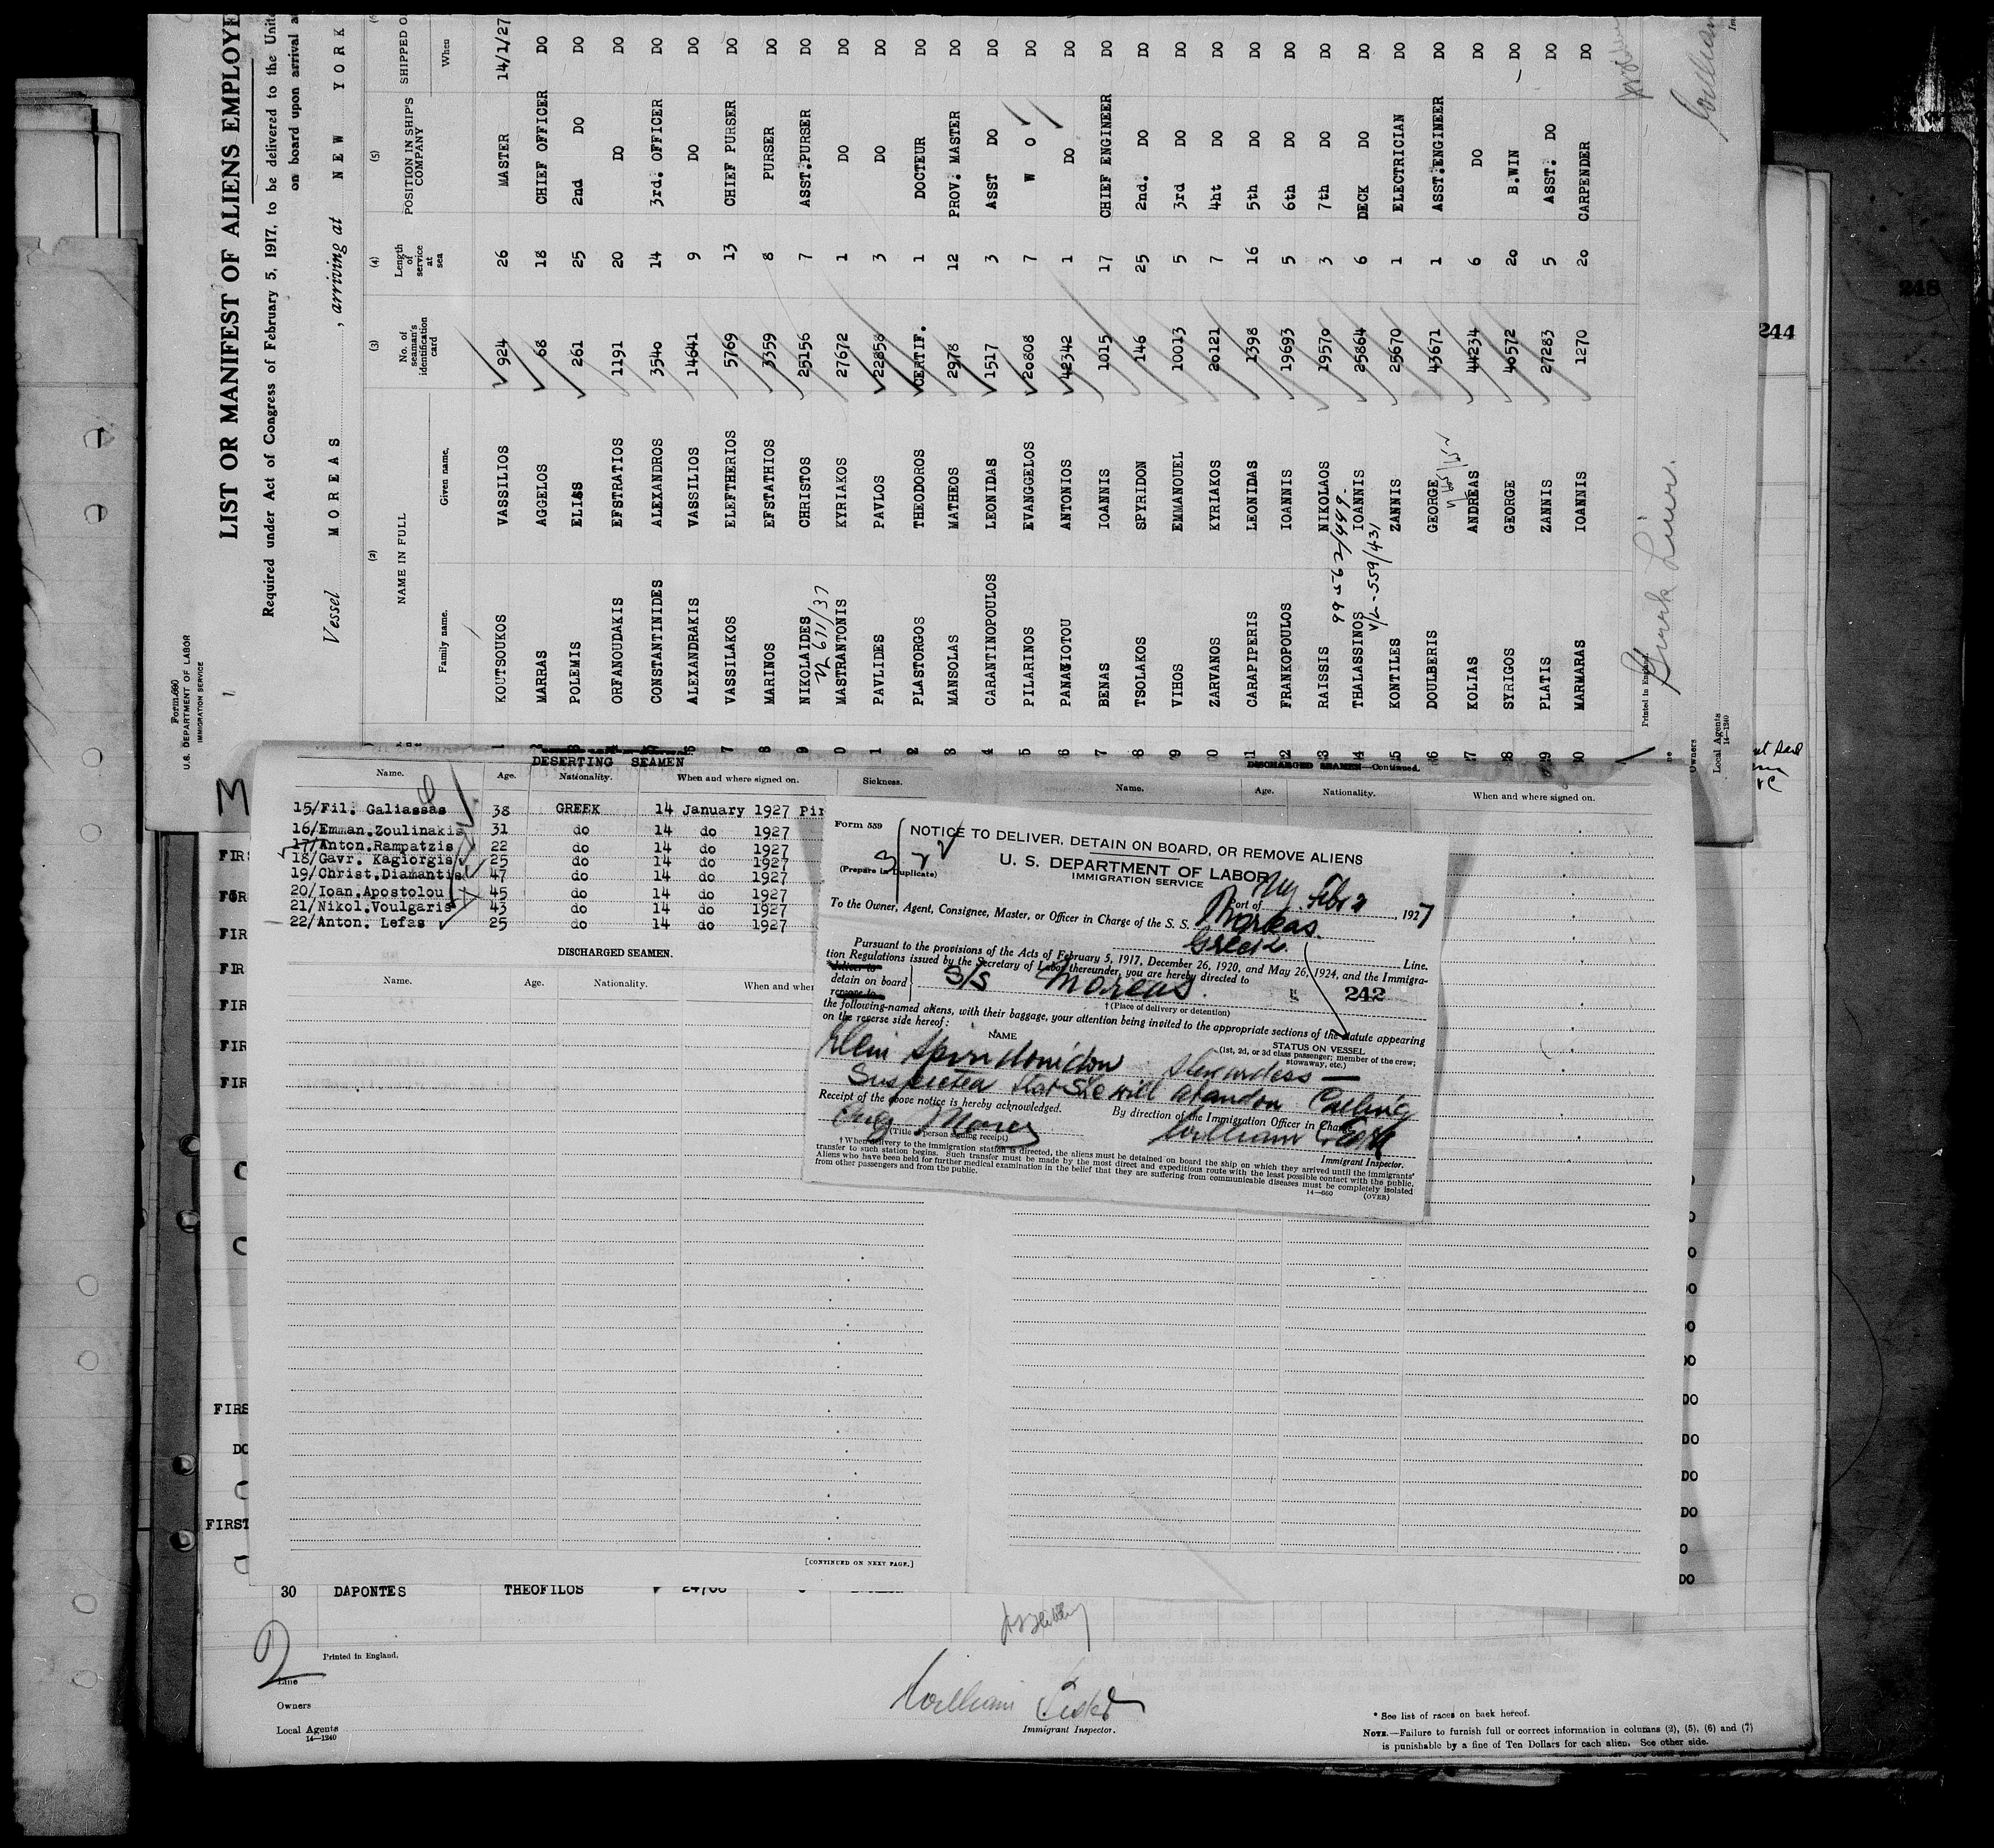 Form 680
U. S. DEPARTMENT OF LABOR
IMMIGRATION SERVICE
LIST OR MANIFEST OF ALIENS EMPLOYE
Required under Act of Congress of February 5, 1917, to be delivered to the Unit
on board upon arrival a
Vessel MOREAS , arriving at NEW YORK
(2) (3) (4) (5)
NAME IN FULL No. of seaman's identification card Length of service at sea POSITION IN SHIP'S COMPANY SHIPPED O
Family name. Given name. When
1 KOUTSOUKOS VASSILIOS 924 26 MASTER 14/1/27
2 MARRAS AGGELOS 68 18 CHIEF OFFICER DO
3 POLEMIS ELIAS 261 25 2nd DO DO
ORFANOUDAKIS EFSTRATIOS 1191 20 DO DO
CONSTANTINIDES ALEXANDROS 3540 14 3rd. OFFICER DO
6 ALEXANDRAKIS VASSILIOS 14641 9 DO DO
7 VASSILAKOS ELEFTHERIOS 5769 13 CHIEF PURSER DO
8 MARINOS EFSTATHIOS 3359 8 PURSER DO
9 NIKOLAIDES CHRISTOS 25156 7 ASST.PURSER DO
0 MASTRANTONIS KYRIAKOS 27672 1 DO DO
1 PAVLIDES PAVLOS 22858 3 DO DO
2 PLASTORGOS THEODOROS CERTIF. 1 DOCTEUR DO
3 MANSOLAS MATHEOS 2978 12 PROV. MASTER DO
4 CARANTINOPOULOS LEONIDAS 1517 3 ASST DO DO
5 PILARINOS EVANGGELOS 20808 7 W O DO
6 PANAGIOTOU ANTONIOS 42342 1 DO DO
7 BENAS IOANNIS 1015 17 CHIEF ENGINEER DO
8 TSOLAKOS SPYRIDON 146 25 2nd. DO DO
9 VIHOS EMMANOUEL 10013 5 3rd DO DO
0 ZARVANOS KYRIAKOS 20121 7 4ht DO DO
21 CARAPIPERIS LEONIDAS 1398 16 5th DO DO
22 FRANKOPOULOS IOANNIS 19693 5 6th DO DO
23 RAISSIS NIKOLAOS 19570 3 7th DO DO
99-562/449.
24 THALASSINOS IOANNIS 25864 6 DECK DO DO
V/L-559/431
25 KONTILES ZANNIS 25670 1 ELECTRICIAN DO
26 DOULBERIS GEORGE 43671 1 ASST.ENGINEER DO
27 KOLIAS ANDREAS 44234 6 DO DO
28 SYRIGOS GEORGE 40572 20 B.WIN DO
29 PLATIS ZANNIS 27283 5 ASST. DO DO
30 MARMARAS IOANNIS 1270 20 CARPENDER DO
Printed in England.
Greek Line.
Owners
Local Agents
14—1240
William
244
248
3
DESERTING SEAMEN
Name. Age. Nationality. When and where signed on. Sickness.
15/Fil. Galiassas 38 GREEK 14 January 1927 Pir
16/Emman.Zoulinakis 31 do 14 do 1927
17/Anton.Rampatzis 22 do 14 do 1927
18/Gavr. Kagiorgis 25 do 14 do 1927
19/Christ.Diamantis 47 do 14 do 1927
20/Ioan.Apostolou 45 do 14 do 1927
21/Nikol.Voulgaris 43 do 14 do 1927
22/Anton. Lefas 25 do 14 do 1927
DISCHARGED SEAMEN.
Name. Age. Nationality. When and wher
DISCHARGED SEAMEN—Continued.
Name. Age. Nationality. When and where signed on.
[CONTINUED ON NEXT PAGE.]
Form 559
(Prepare in Duplicate)
NOTICE TO DELIVER, DETAIN ON BOARD, OR REMOVE ALIENS
U. S. DEPARTMENT OF LABOR
IMMIGRATION SERVICE
Port of NY. Feb 2, 1927
To the Owner, Agent, Consignee, Master, or Officer in Charge of the S. S. Moreas
Greek Line.
Pursuant to the provisions of the Acts of February 5, 1917, December 26, 1920, and May 26, 1924, and the Immigra-
tion Regulations issued by the Secretary of Labor thereunder, you are hereby directed to
deliver to
detain on board
remove to
S/S Moreas. 242
† (Place of delivery or detention)
the following-named aliens, with their baggage, your attention being invited to the appropriate sections of the statute appearing
on the reverse side hereof:
NAME STATUS ON VESSEL
(1st, 2d, or 3d class passenger; member of the crew; stowaway, etc.)
Eleni Spiridonidou Stewardess —
Suspected that she will abandon Calling
Receipt of the above notice is hereby acknowledged. By direction of the Immigration Officer in Charge.
(Title of person signing receipt) Immigrant Inspector.
† When delivery to the immigration station is directed, the aliens must be detained on board the ship on which they arrived until the immigrants'
transfer to such station begins. Such transfer must be made by the most direct and expeditious route with the least possible contact with the public.
Aliens who have been held for further medical examination in the belief that they are suffering from communicable diseases must be completely isolated
from other passengers and from the public.
14—660 (OVER)
FIRS
DO
FIRST
30 DAPONTES THEOFILOS
2
Printed in England.
Line
Owners
Local Agents
14—1240
William
Immigrant Inspector.
* See list of races on back hereof.
NOTE.—Failure to furnish full or correct information in columns (2), (5), (6) and (7)
is punishable by a fine of Ten Dollars for each alien. See other side.